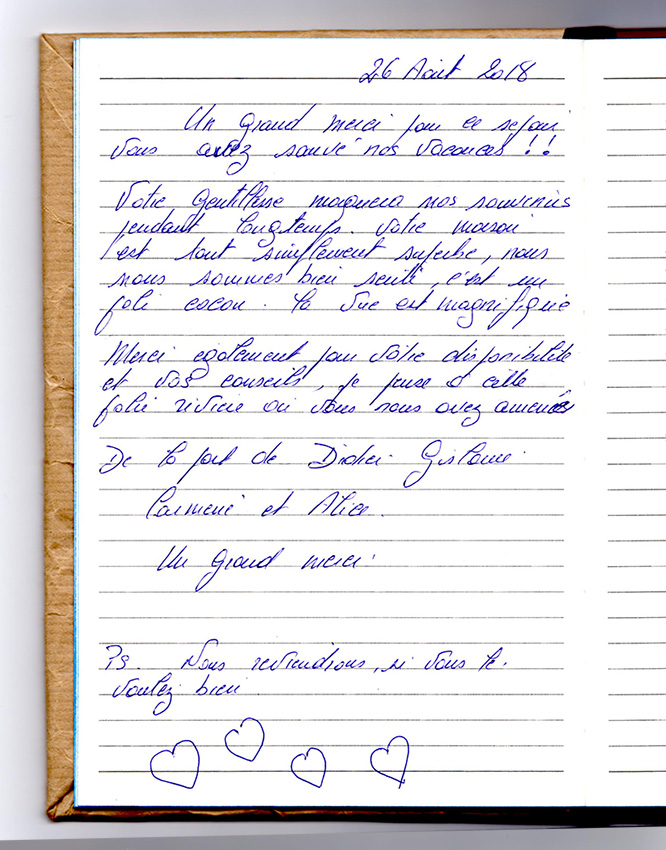 26 Août 2018
Un Grand merci pour ce sejour
Vous avez sauvé nos vacances !!
Votre Gentillesse marquera nos souvenirs
pendant longtemps. Votre maison
est tout simplement superbe, nous
nous sommes bien senti, c'est un
joli cocon. la vue est magnifique
Merci egalement pour vôtre disponibilité
et vos conseils, je pense à cette
jolie rivière où vous nous avez amenés
De la part de Didier Gislaine
et Alice.
Un Grand merci
Ps. Nous reviendrons, si vous le
voulez bien